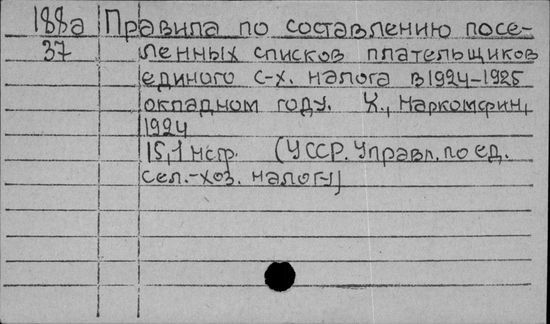 188а Правила по составлению посе-
37 ленных списков плательщиков
единого с-х. налога в 1924-1925
окладном году. Х., Наркомфин,
1924
15,1 нстр. (УССР. Управл. по ед.
сел.-хоз. налогу)